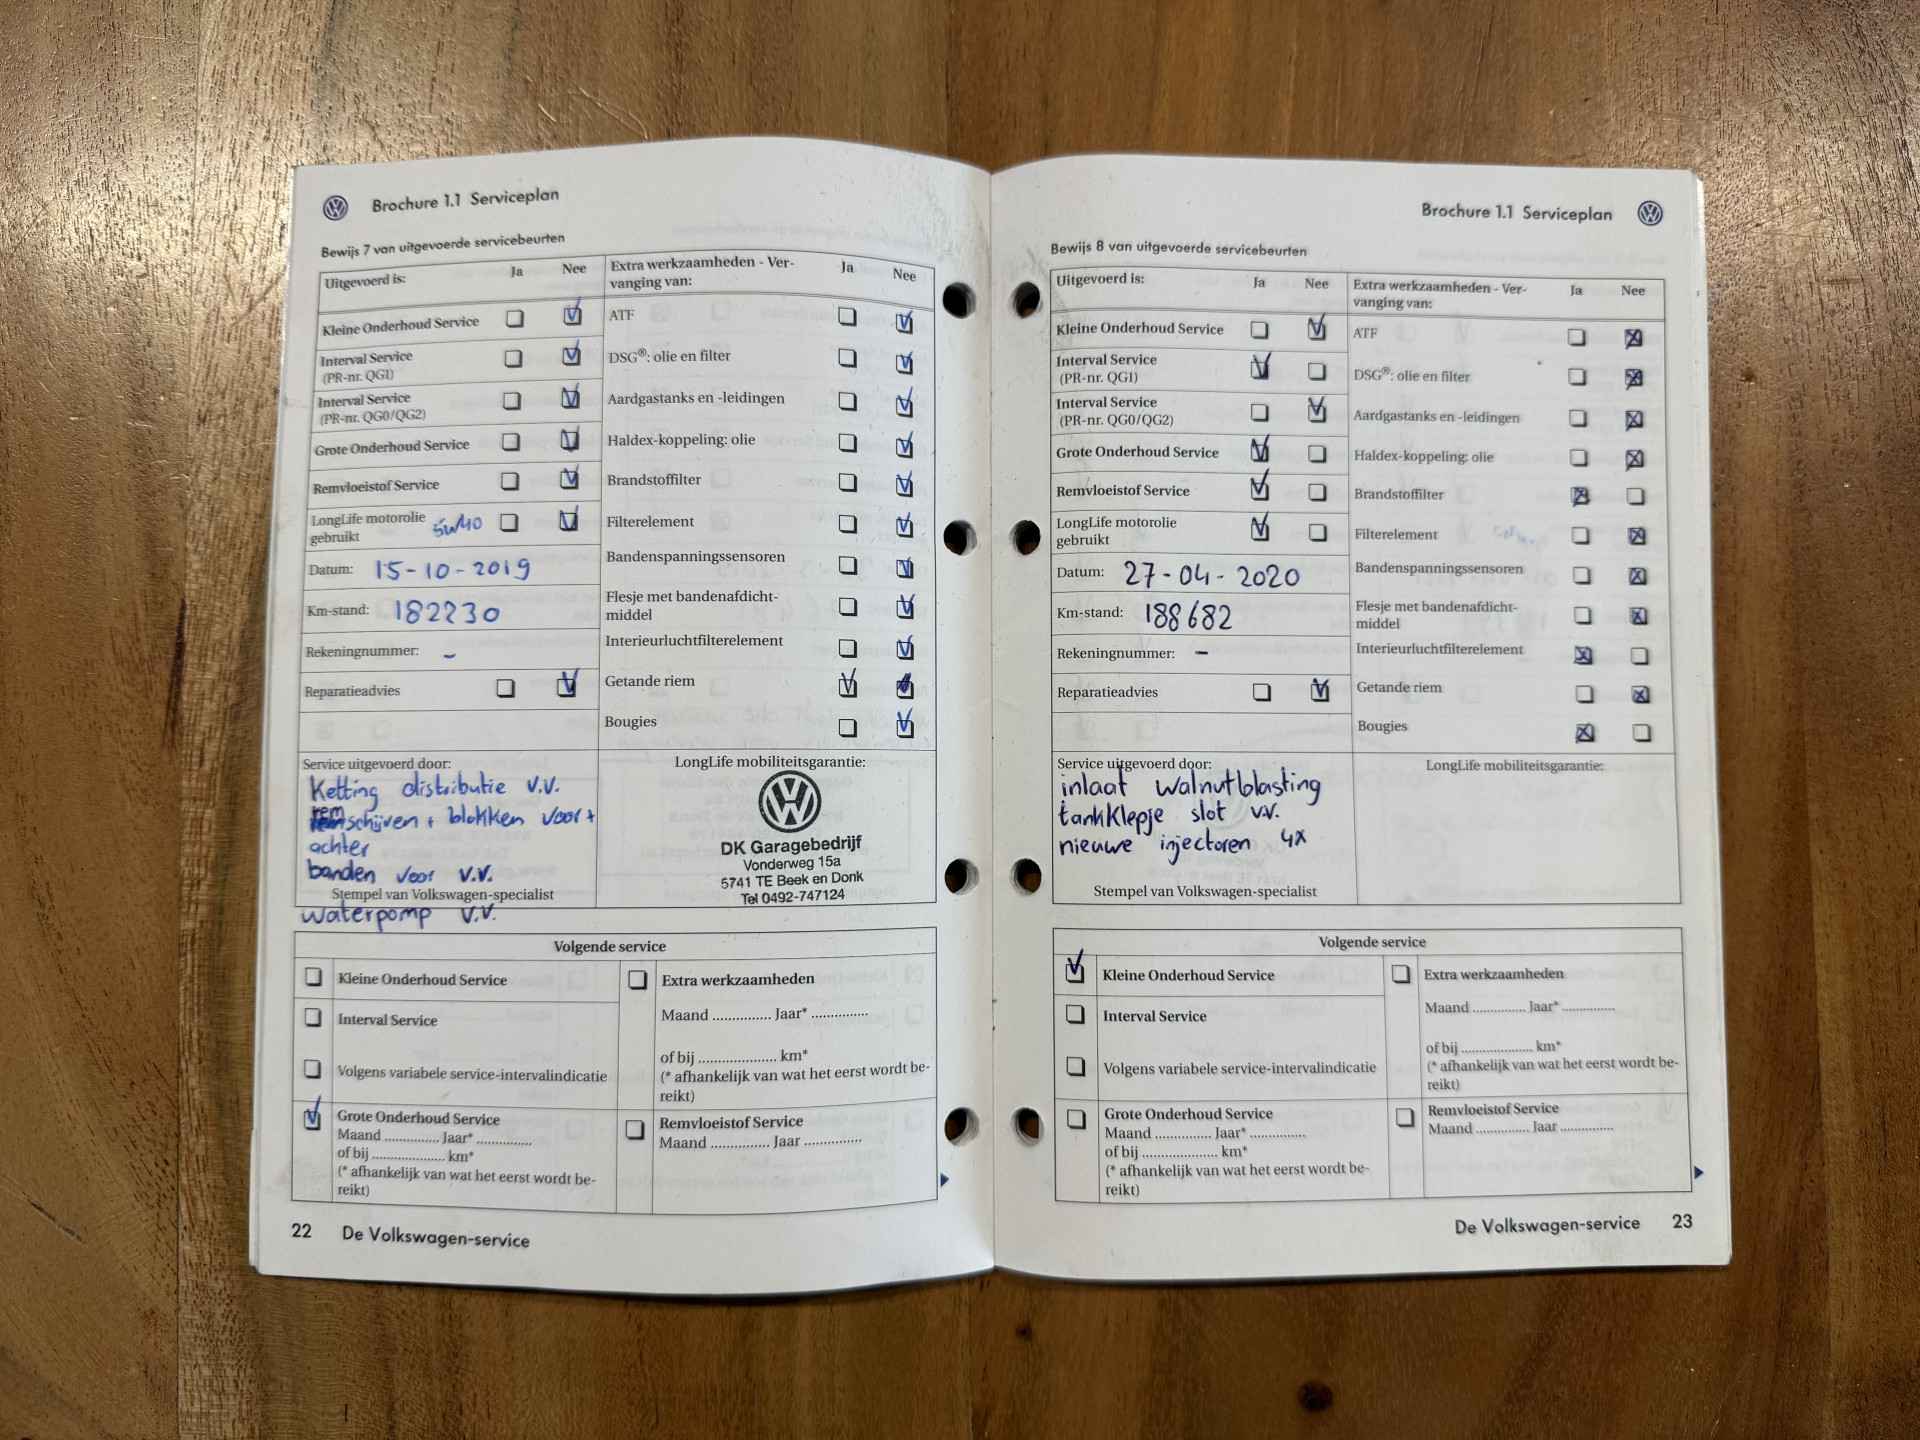 Brochure 1.1 Serviceplan
Bewijs 7 van uitgevoerde servicebeurten
Uitgevoerd is: Ja Nee
Kleine Onderhoud Service
Interval Service
(PR-nr. QG1)
Interval Service
(PR-nr. QG0/QG2)
Grote Onderhoud Service
Remvloeistof Service
LongLife motorolie 5W40
gebruikt
Datum: 15-10-2019
Km-stand: 182230
Rekeningnummer: -
Reparatieadvies
Extra werkzaamheden - Ver-
vanging van: Ja Nee
ATF
DSG®: olie en filter
Aardgastanks en -leidingen
Haldex-koppeling: olie
Brandstoffilter
Filterelement
Bandenspanningssensoren
Flesje met bandenafdicht-
middel
Interieurluchtfilterelement
Getande riem
Bougies
Service uitgevoerd door:
Ketting distributie v.v.
remschijven + blokken voor +
achter
banden voor v.v.
Stempel van Volkswagen-specialist
waterpomp v.v.
LongLife mobiliteitsgarantie:
DK Garagebedrijf
Vonderweg 15a
5741 TE Beek en Donk
Tel 0492-747124
Volgende service
Kleine Onderhoud Service
Interval Service
Volgens variabele service-intervalindicatie
Grote Onderhoud Service
Maand ............... Jaar* ...............
of bij .................... km*
(* afhankelijk van wat het eerst wordt be-
reikt)
Extra werkzaamheden
Maand ............... Jaar* ...............
of bij .................... km*
(* afhankelijk van wat het eerst wordt be-
reikt)
Remvloeistof Service
Maand ............... Jaar ...............
22 De Volkswagen-service
Brochure 1.1 Serviceplan
Bewijs 8 van uitgevoerde servicebeurten
Uitgevoerd is: Ja Nee
Kleine Onderhoud Service
Interval Service
(PR-nr. QG1)
Interval Service
(PR-nr. QG0/QG2)
Grote Onderhoud Service
Remvloeistof Service
LongLife motorolie
gebruikt
Datum: 27-04-2020
Km-stand: 188682
Rekeningnummer: -
Reparatieadvies
Extra werkzaamheden - Ver-
vanging van: Ja Nee
ATF
DSG®: olie en filter
Aardgastanks en -leidingen
Haldex-koppeling: olie
Brandstoffilter
Filterelement
Bandenspanningssensoren
Flesje met bandenafdicht-
middel
Interieurluchtfilterelement
Getande riem
Bougies
Service uitgevoerd door:
inlaat walnutblasting
tankklepje slot v.v.
nieuwe injectoren 4x
Stempel van Volkswagen-specialist
LongLife mobiliteitsgarantie:
Volgende service
Kleine Onderhoud Service
Interval Service
Volgens variabele service-intervalindicatie
Grote Onderhoud Service
Maand ............... Jaar* ...............
of bij .................... km*
(* afhankelijk van wat het eerst wordt be-
reikt)
Extra werkzaamheden
Maand ............... Jaar* ...............
of bij .................... km*
(* afhankelijk van wat het eerst wordt be-
reikt)
Remvloeistof Service
Maand ............... Jaar ...............
De Volkswagen-service 23